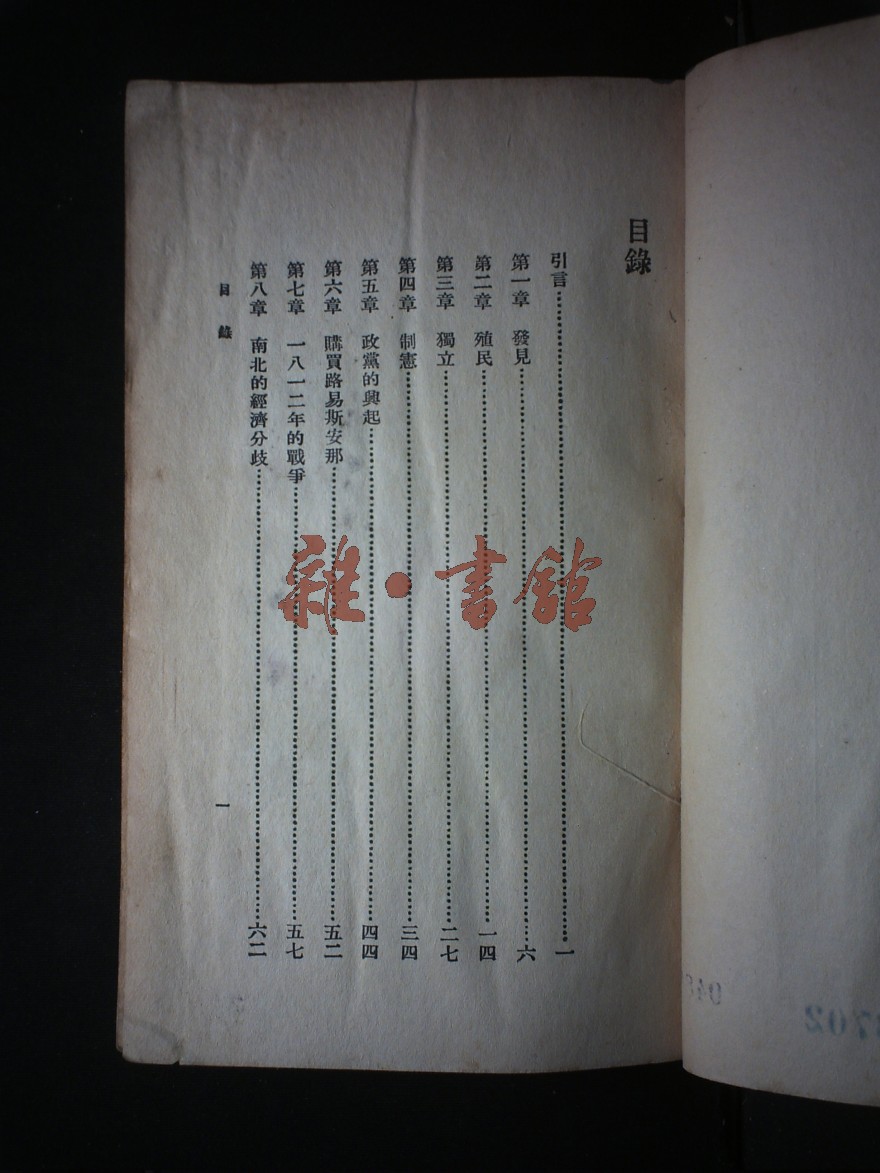 目錄
引言……一
第一章 發見……六
第二章 殖民……一四
第三章 獨立……二七
第四章 制憲……三四
第五章 政黨的興起……四四
第六章 購買路易斯安那……五二
第七章 一八一二年的戰爭……五七
第八章 南北的經濟分歧……六二
目錄
一
雜·書館